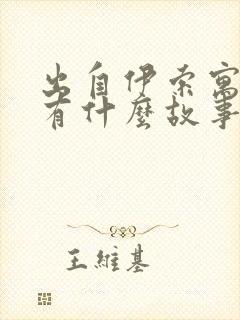 出自伊索寓
有什麼故事
王維基